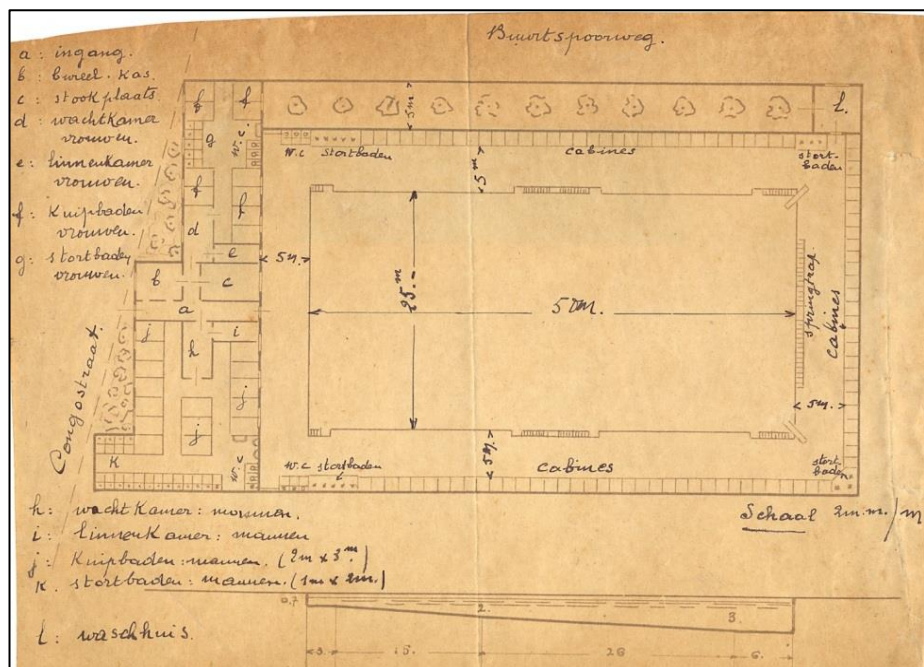 Buurtspoorweg.
a : ingang.
b : bureel. Kas.
c : stookplaats.
d : wachtkamer
vrouwen.
e : linnenkamer
vrouwen.
f : Kuipbaden
vrouwen.
g : stortbaden
vrouwen.
f
f
g
w.c.
f
f
d
e
b
c
a
j
i
h
j
j
K
w.c
Congostraat.
5m
l.
w.c stortbaden
cabines
stort-
baden
5m
5m.
25.m
50m.
springtrap.
cabines
5m.
5m
w.c stortbaden
cabines
stort-
baden
h : wachtkamer : mannen.
i : linnenkamer : mannen
j : Kuipbaden : mannen. (2m x 3m.)
K. stortbaden : mannen. (1m x 2m.)
l : waschhuis.
Schaal 2m.m./m
0,7
2.
3.
3.
15.
26
6.